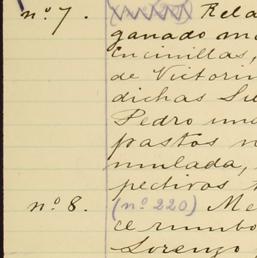 n.º 7. Rela
ganado m
Encinillas,
de Victorin
dichas Su
Pedro una
pastos
mulada,
pectivos
n.º 8. (nº 220) Me
ce rumbo
Lorenzo